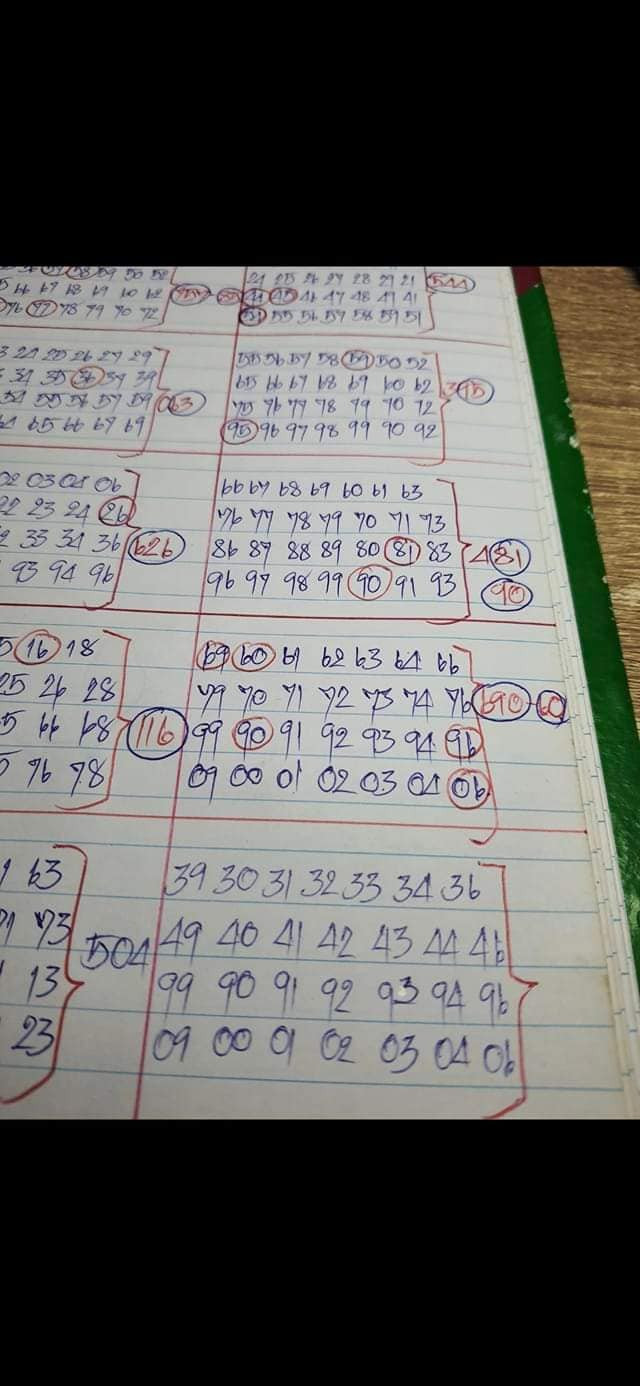 58 59 50 52
66 67 68 69 60 62
76 77 78 79 70 72
24 25 26 27 28 29 21 544
44 45 46 47 48 49 41
54 55 56 57 58 59 51
24 25 26 27 29
34 35 36 37 39
54 55 56 57 59 063
65 66 67 69
55 56 57 58 59 50 52
65 66 67 68 69 60 62 395
75 76 77 78 79 70 72
95 96 97 98 99 90 92
02 03 04 06
22 23 24 26
33 34 36 626
93 94 96
66 67 68 69 60 61 63
76 77 78 79 70 71 73
86 87 88 89 80 81 83 481
96 97 98 99 90 91 93 90
16 18
25 26 28
66 68 116
76 78
69 60 61 62 63 64 66
79 70 71 72 73 74 76 690-60
99 90 91 92 93 94 96
09 00 01 02 03 04 06
63
73 504
13
23
39 30 31 32 33 34 36
49 40 41 42 43 44 46
99 90 91 92 93 94 96
09 00 01 02 03 04 06